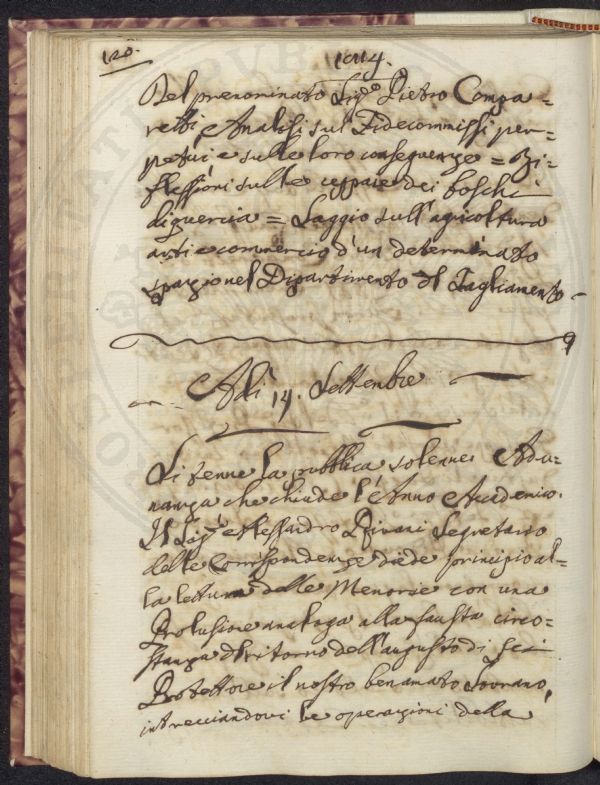 120.
1814.
Del prenominato Sigr. Pietro Compa=
retti, Analisi sul Fidecommissi per=
petui e sulle loro conseguenze = Ri=
flessioni sulle ceppaie dei boschi
di quercia = Saggio sull'agricoltura
arti e commercio d'un determinato
spazio nel Dipartimento del Tagliamento
Adì 14. Settembre
Si tenne la pubblica solenne Adu=
nanza che chiude l'Anno Accademico.
Il Sigr. Alessandro Rivani Segretario
delle Corrispondenze diede principio al=
la lettura delle Memorie con una
Prolusione analoga alla fausta circo=
stanza del ritorno dell'augusto di Lei
Protettore il nostro benamato Sovrano,
intrecciandovi le operazioni della